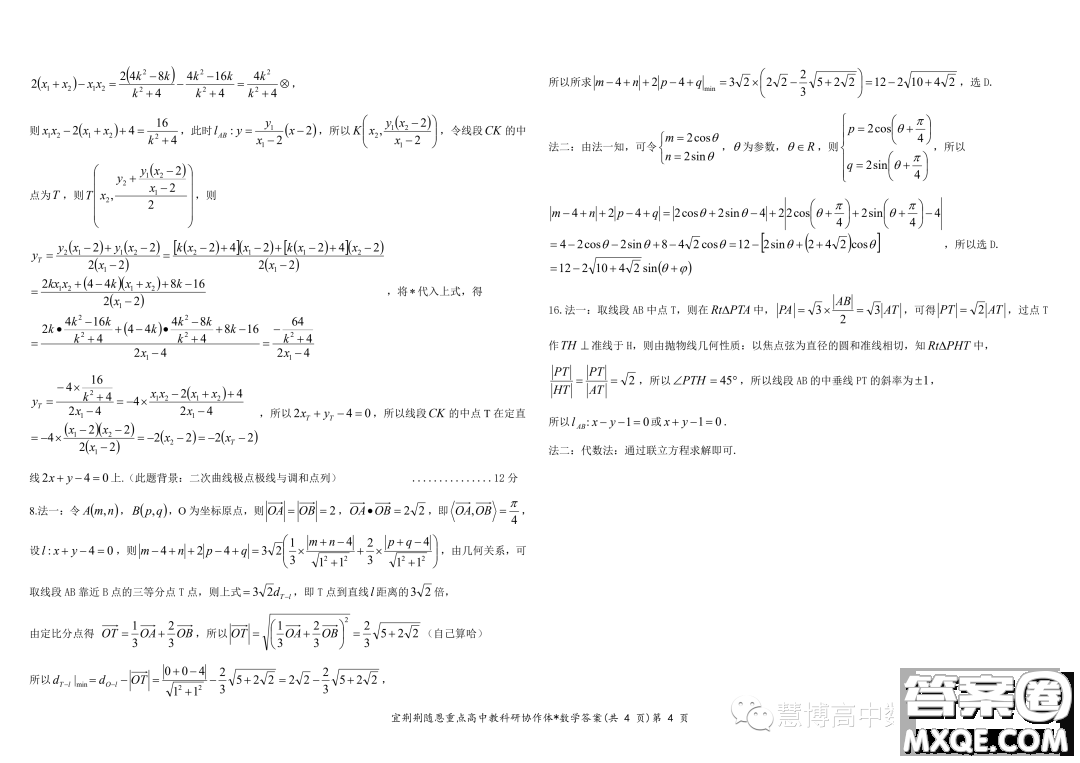 2(x₁+x₂)−x₁x₂ = 2(4k²−8k)/(k²+4) − (4k²−16k)/(k²+4) = 4k²/(k²+4) ⊗,
则 x₁x₂−2(x₁+x₂)+4 = 16/(k²+4), 此时 l_AB : y = y₁/(x₁−2) (x−2), 所以 K(x₂, y₁(x₂−2)/(x₁−2)), 令线段 CK 的中
点为 T, 则 T(x₂, (y₂ + y₁(x₂−2)/(x₁−2))/2), 则
y_T = [y₂(x₁−2)+y₁(x₂−2)]/[2(x₁−2)] = {[k(x₂−2)+4](x₁−2)+[k(x₁−2)+4](x₂−2)}/[2(x₁−2)]
= [2kx₁x₂+(4−4k)(x₁+x₂)+8k−16]/[2(x₁−2)] , 将 * 代入上式, 得
= [2k•(4k²−16k)/(k²+4)+(4−4k)•(4k²−8k)/(k²+4)+8k−16]/(2x₁−4) = [−64/(k²+4)]/(2x₁−4)
y_T = [−4×16/(k²+4)]/(2x₁−4) = −4×[x₁x₂−2(x₁+x₂)+4]/(2x₁−4)
= −4×(x₁−2)(x₂−2)/[2(x₁−2)] = −2(x₂−2) = −2(x_T−2) , 所以 2x_T+y_T−4=0, 所以线段 CK 的中点 T 在定直
线 2x+y−4=0 上.(此题背景：二次曲线极点极线与调和点列) ...............12 分
8.法一：令 A(m,n), B(p,q), O 为坐标原点, 则 |OA|=|OB|=2, OA•OB=2√2, 即 ⟨OA,OB⟩=π/4,
设 l:x+y−4=0, 则 |m−4+n|+2|p−4+q| = 3√2(1/3×|m+n−4|/√(1²+1²)+2/3×|p+q−4|/√(1²+1²)), 由几何关系, 可
取线段 AB 靠近 B 点的三等分点 T 点, 则上式 = 3√2 d_{T−l}, 即 T 点到直线 l 距离的 3√2 倍,
由定比分点得 OT = 1/3 OA + 2/3 OB, 所以 |OT| = √((1/3 OA + 2/3 OB)²) = 2/3 √(5+2√2) (自己算哈)
所以 d_{T−l}|min = d_{O−l} − |OT| = |0+0−4|/√(1²+1²) − 2/3 √(5+2√2) = 2√2 − 2/3 √(5+2√2),
所以所求 |m−4+n|+2|p−4+q|min = 3√2×(2√2 − 2/3 √(5+2√2)) = 12−2√(10+4√2), 选 D.
法二：由法一知, 可令 {m=2cosθ, n=2sinθ, θ 为参数, θ∈R, 则 {p=2cos(θ+π/4), q=2sin(θ+π/4), 所以
|m−4+n|+2|p−4+q| = |2cosθ+2sinθ−4|+2|2cos(θ+π/4)+2sin(θ+π/4)−4|
= 4−2cosθ−2sinθ+8−4√2cosθ = 12−[2sinθ+(2+4√2)cosθ] , 所以选 D.
= 12−2√(10+4√2) sin(θ+φ)
16.法一：取线段 AB 中点 T, 则在 Rt∆PTA 中, |PA| = √3×|AB|/2 = √3|AT|, 可得 |PT| = √2|AT|, 过点 T
作 TH⊥准线于 H, 则由抛物线几何性质：以焦点弦为直径的圆和准线相切, 知 Rt∆PHT 中,
|PT|/|HT| = |PT|/|AT| = √2, 所以 ∠PTH=45°, 所以线段 AB 的中垂线 PT 的斜率为 ±1,
所以 l_AB : x−y−1=0 或 x+y−1=0.
法二：代数法：通过联立方程求解即可.
宜荆荆随恩重点高中教科研协作体*数学答案(共 4 页)第 4 页
慧博高中数
答案圈
MXQE.COM